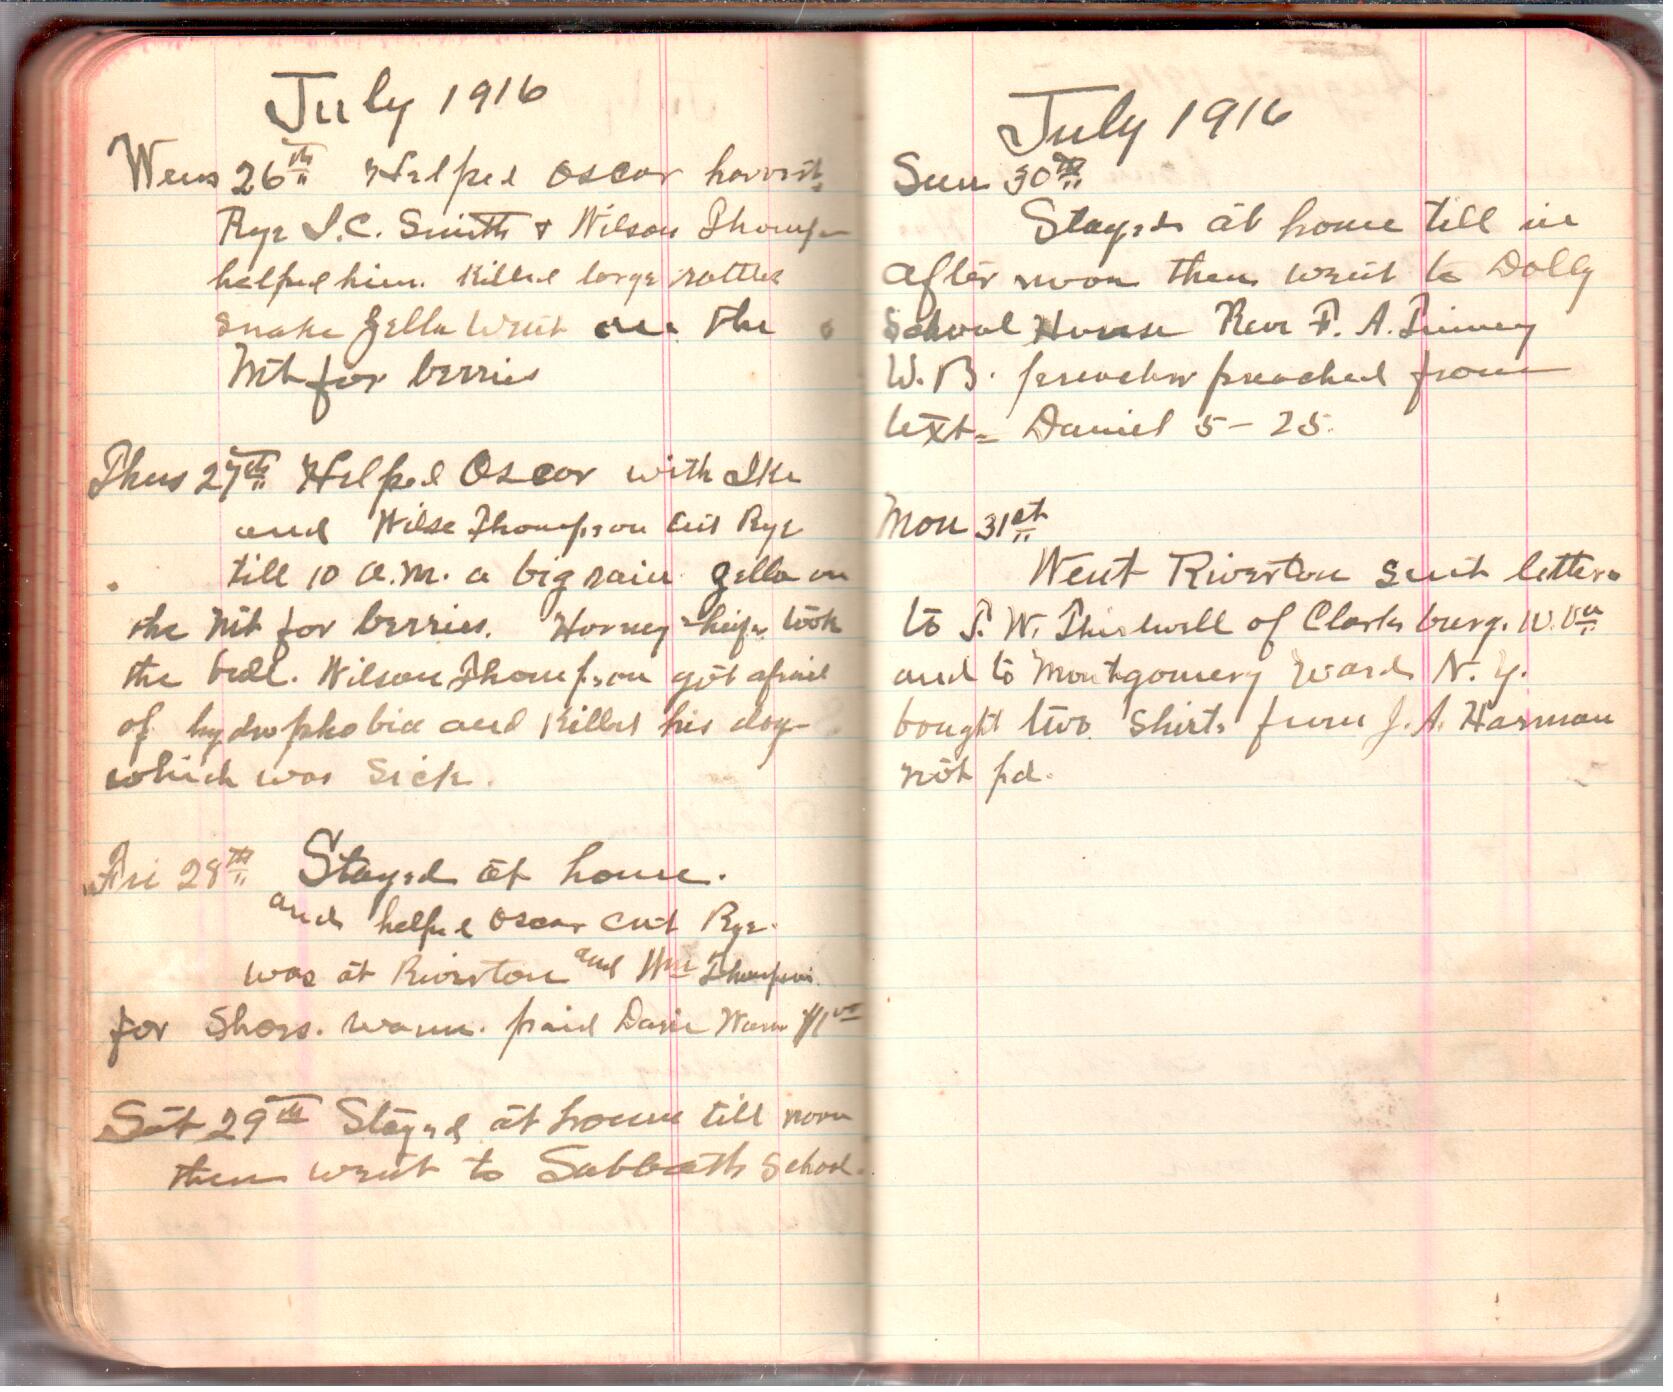 July 1916
Wens 26th Helped Oscar harvest
Rye I.C. Smith & Wilson Thomp
helped him. Killed large rattle
snake Zella went on the
Mt for berries
Thus 27th Helped Oscar with Ike
and Wilse Thompson cut Rye
till 10 A.M. a big rain. Zella on
the Mt for berries. Horney heifer took
the bull. Wilson Thompson got afraid
of hydrophobia and killed his dog
which was sick.
Fri 28th Stayed at home.
and helped Oscar cut Rye.
was at Riverton and Wm Thompson
for Shoes. warm. paid Dasie Warn $1
Sat 29th Stayed at home till noon
then went to Sabbath School.
July 1916
Sun 30th
Stayed at home till in
after noon then went to Dolly
School House Rev F. A.
W.B. preacher preached from
text= Daniel 5-25.
Mon 31st
Went Riverton sent letters
to W. of Clarksburg. W.Va
and to Montgomery Ward N.Y.
bought two shirts from J.A. Harman
not pd.